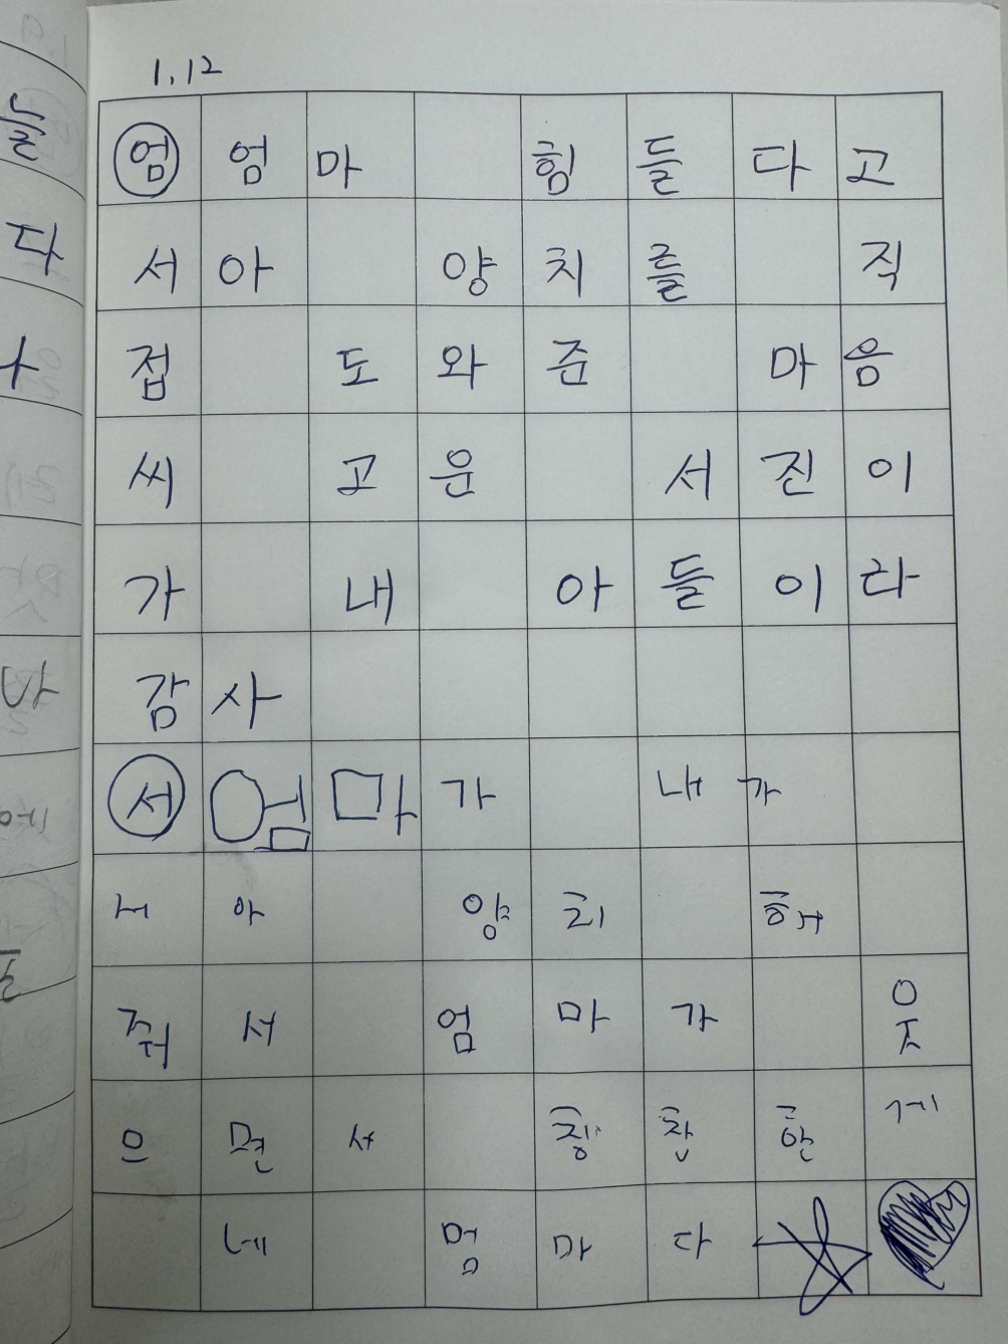 1.12
엄 엄마 힘들다고
서아 양치를 직
접 도와준 마음
씨 고운 서진이
가 내 아들이라
감사
서 엄마가 내가
서아 양치 해
줘서 엄마가 웃
으면서 칭찬한게
네 멈마다